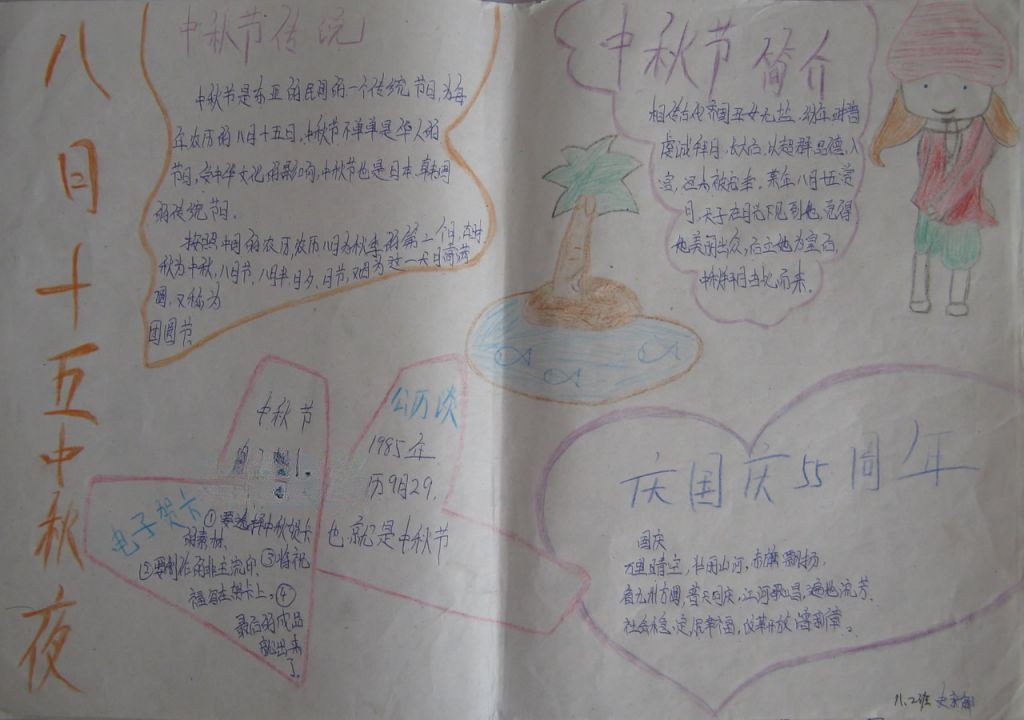 八日十五中秋夜
中秋节传统
中秋节是东亚的民间的一个传统节日,为每
年农历的八月十五日,中秋节不单单是华人的
节日,受中华文化的影响,中秋节也是日本、韩国
的传统节日。
按照中国的农历,农历八月为秋季的第二个月,古时
称为中秋,八月节,八月半,月夕,月节,又因为这一天月亮满
圆,又称为
团圆节
中秋节简介
相传古代齐国丑女无盐,幼年时曾
虔诚拜月,长大后,以超群品德,入
宫,但未被宠幸,某年八月十五赏
月,天子在月光下见到她,觉得
她美丽出众,后立她为皇后,
中秋拜月由此而来。
中秋节
公历谈
1985年
历9月29.
也就是中秋节
电子贺卡
①要选择中秋贺卡
的素材.
③将祝
福写在贺卡上。④
最后的成品
就出来
了
庆国庆55周年
国庆
万里晴空,壮丽山河,赤旗飘扬,
看九州方圆,普天同庆,江河歌唱,遍地流芳、
社会稳定,民幸福,改革开放谱新章。
八.2班